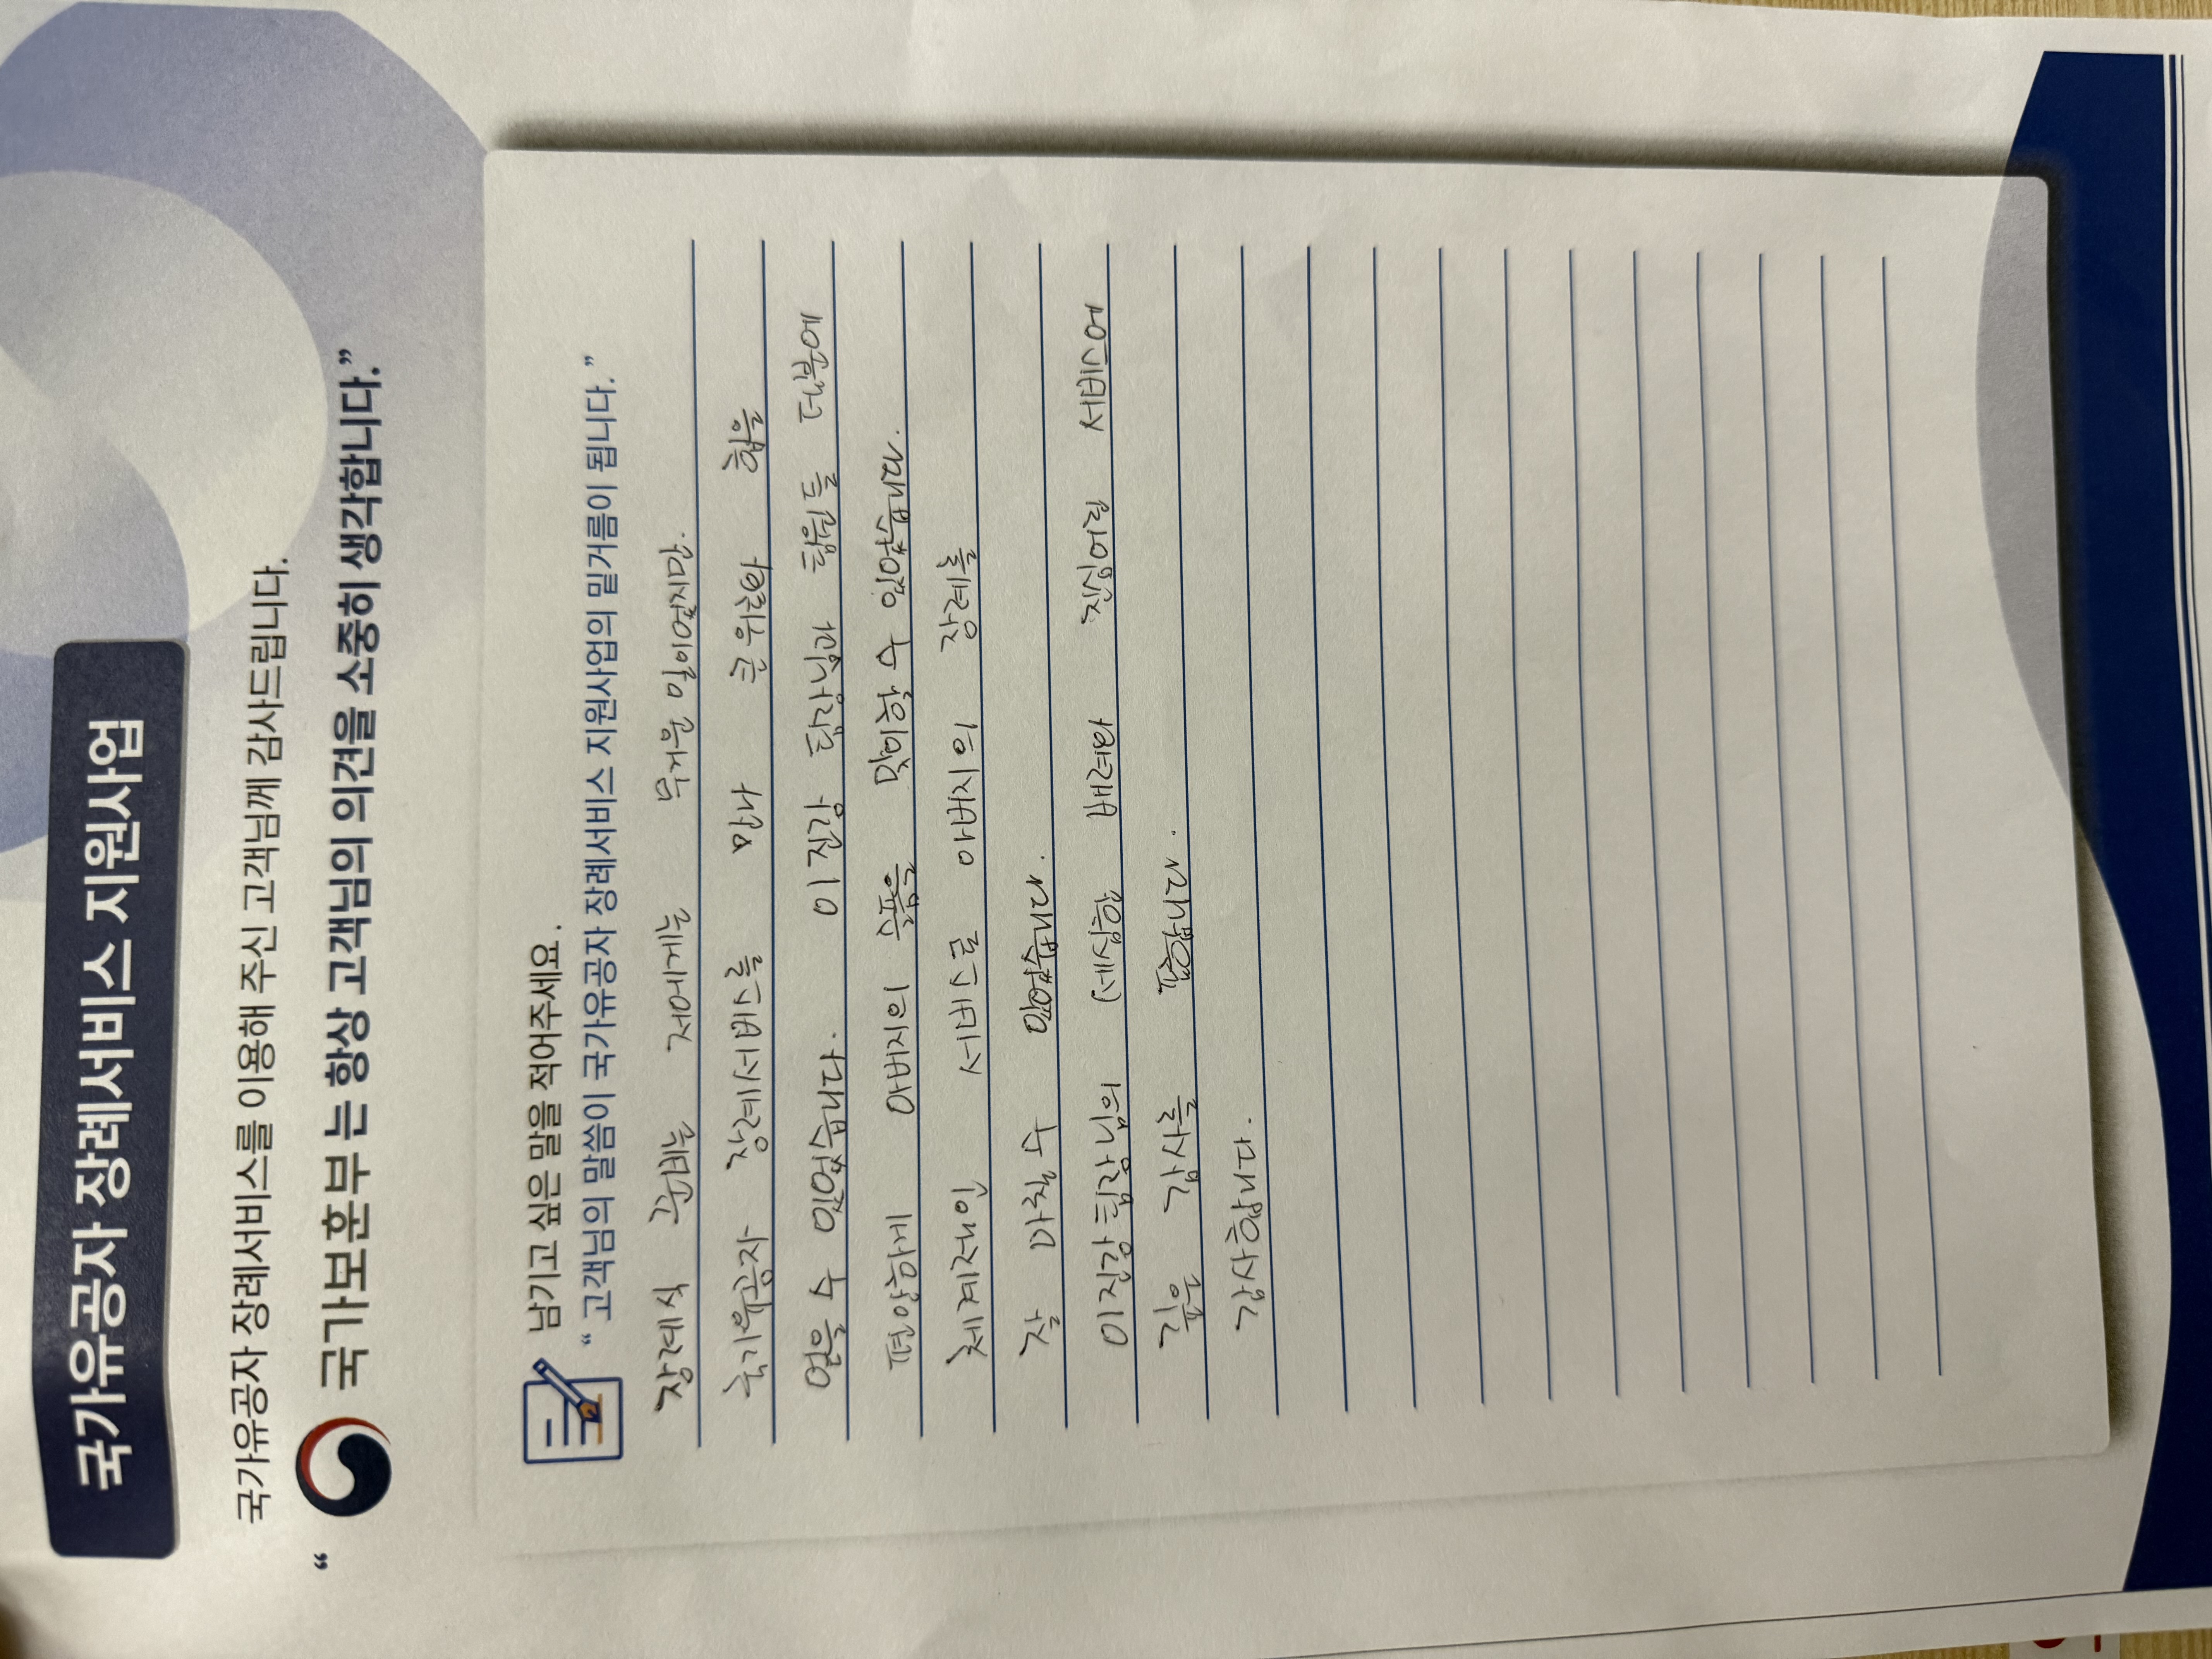 국가유공자 장례서비스 지원사업
국가유공자 장례서비스를 이용해 주신 고객님께 감사드립니다.
“ 국가보훈부 는 항상 고객님의 의견을 소중히 생각합니다.”
남기고 싶은 말을 적어주세요.
“ 고객님의 말씀이 국가유공자 장례서비스 지원사업의 밑거름이 됩니다. ”
장례식 준비는 저에게는 무거운 일이었지만.
국가유공자 장례서비스를 만나 큰 위로와 힘을
얻을 수 있었습니다. 이진강 팀장님과 팀원들 덕분에
편안하게 아버지의 슬픔을 맞이할 수 있었습니다.
체계적인 서비스로 아버지의 장례를
잘 마칠 수 있었습니다.
이진강 팀장님의 세심한 배려와 진심어린 서비스에
깊은 감사를 표합니다.
감사합니다.